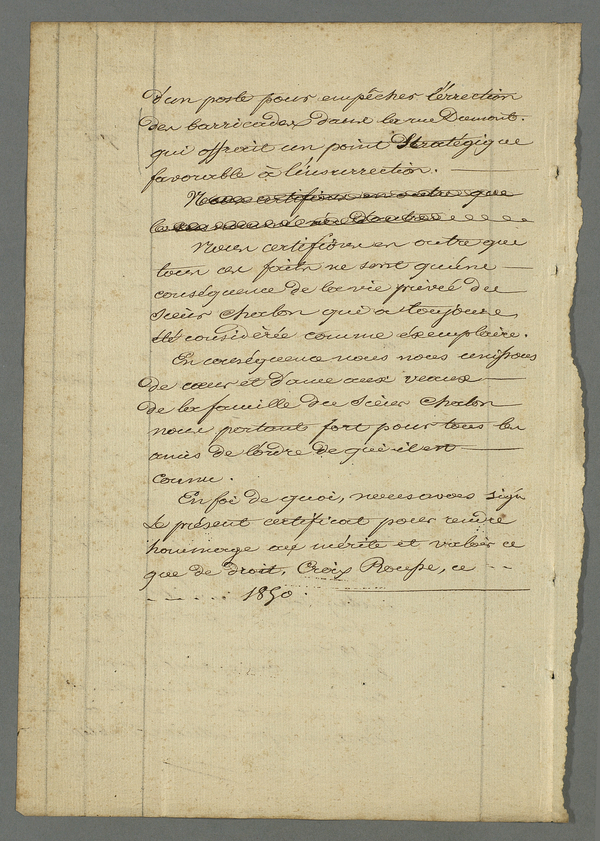 d'un poste pour empêcher l'érrection
des barricades dans la rue Dumont.
qui offrait un point Stratégique
favorable à l'insurrection.
Nous certifions en outre que
Nous certifions en outre que
tous ces faits ne sont qu'une
conséquence de la vie privée du
Sieur Chalon qui a toujours
été considérée comme éxemplaire.
En conséquence nous nous unissons
de cœur et d'ame aux veaux
de la famille du Sieur Chalon
nous portant fort pour tous les
amis de l'ordre de qui il est
connu.
En foi de quoi, nous avons signé
le présent certificat pour rendre
hommage au mérite et valoir ce
que de droit, Croix Rousse, ce
1850